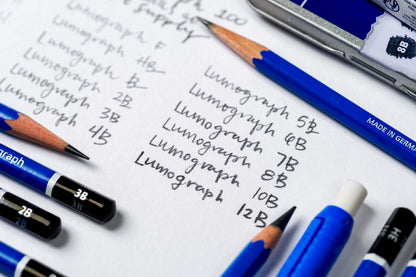 100
Supply
Lumograph F
Lumograph HB
Lumograph B
Lumograph 2B
Lumograph 3B
Lumograph 4B
Lumograph 5B
Lumograph 6B
Lumograph 7B
Lumograph 8B
Lumograph 10B
Lumograph 12B
8B
MADE IN GERMA
ograph
3B
3B
2B
2B
3H